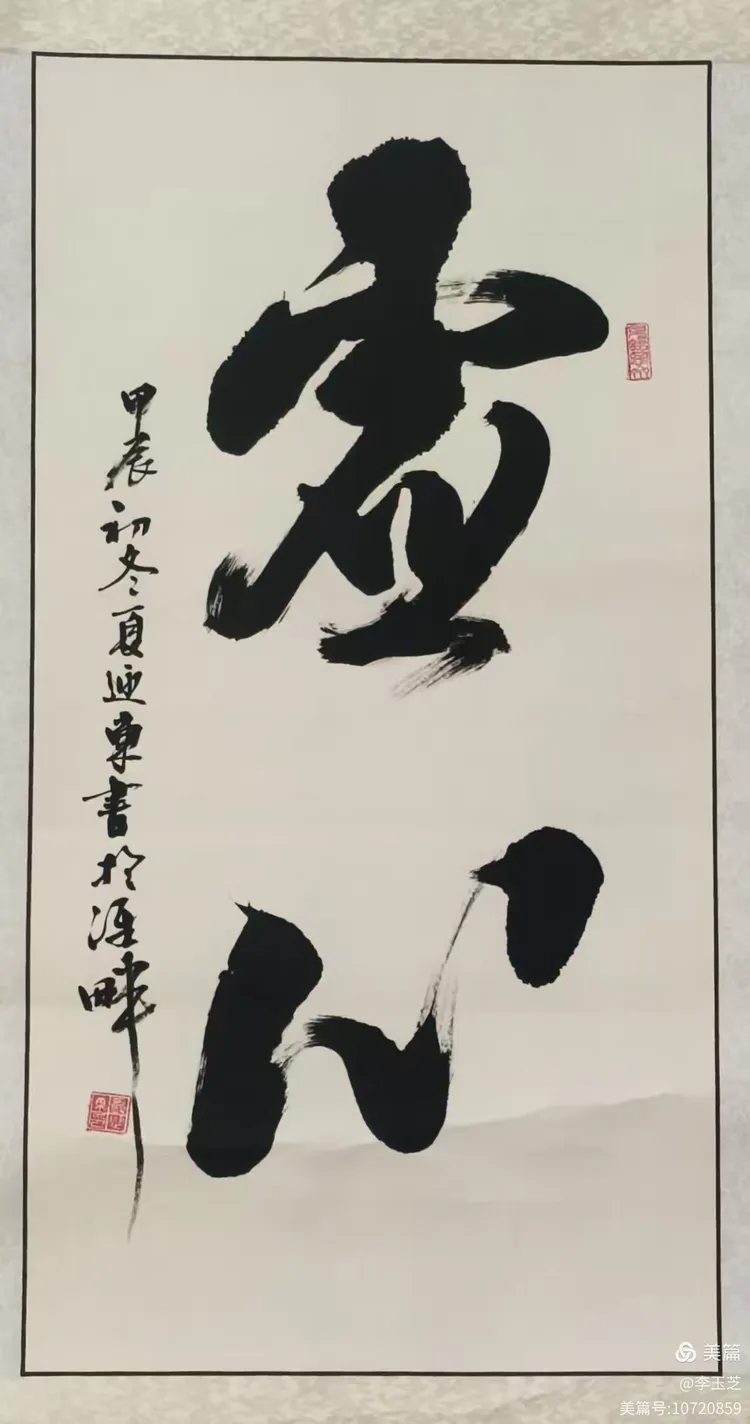 虚心
甲辰初冬夏迎东书於漂畔
美篇
@李玉芝
美篇号:10720859